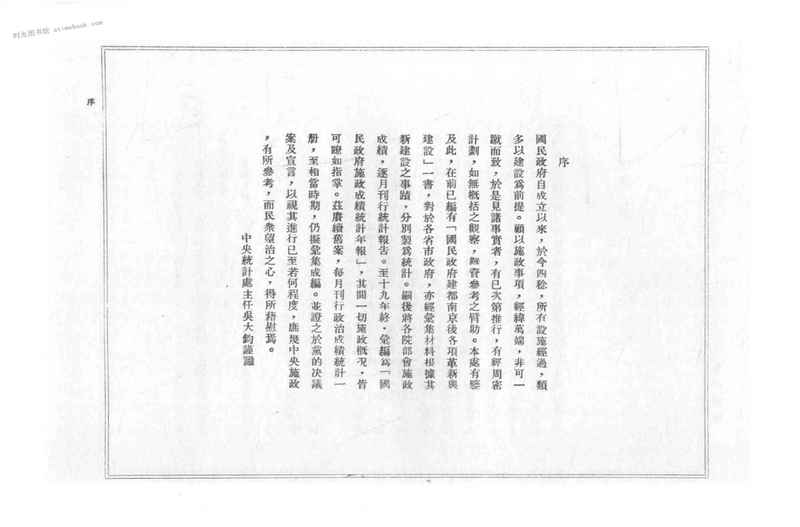 时光图书馆 atimebook.com
序
序
國民政府自成立以來，於今四稔，所有設施經過，類
多以建設爲前提。顧以施政事項，經緯萬端，非可一
蹴而致，於是見諸事實者，有已次第推行，有經周密
計劃，如無概括之觀察，無資參考之臂助。本處有鑒
及此，在前已編有「國民政府建都南京後各項革新與
建設」一書，對於各省市政府，亦經彙集材料根據其
新建設之事蹟，分別製爲統計。嗣後將各院部會施政
成績，逐月刊行統計報告。至十九年終，彙編爲「國
民政府施政成績統計年報」，其間一切施政概況，皆
可瞭如指掌。茲賡續舊案，每月刊行政治成績統計一
册，至相當時期，仍擬彙集成編。並證之於黨的決議
案及宣言，以視其進行已至若何程度，庶幾中央施政
，有所參考，而民衆望治之心，得所藉慰焉。
中央統計處主任吳大鈞謹識